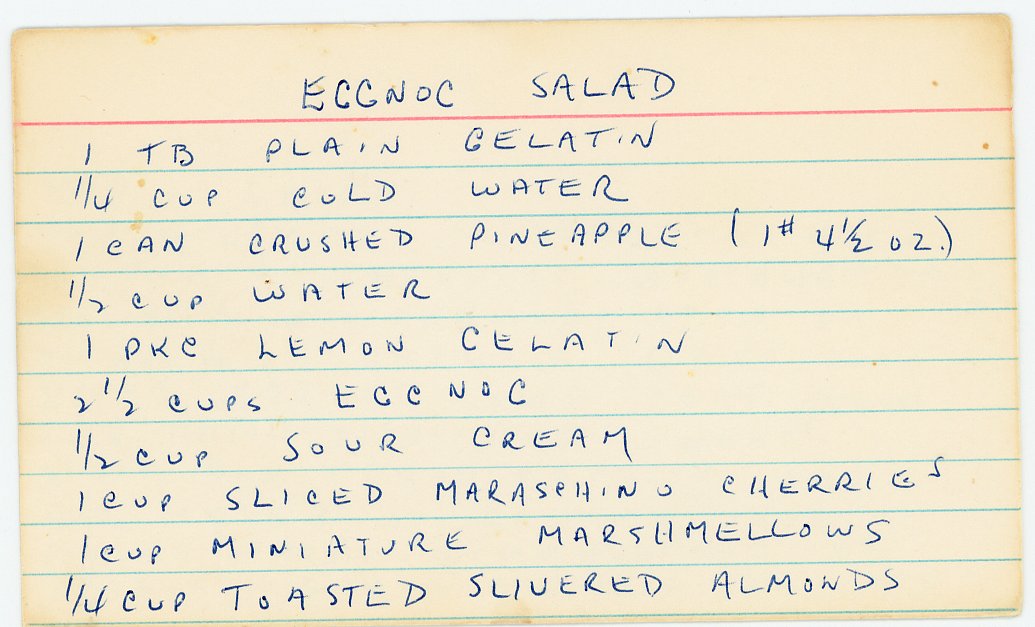 EGGNOG SALAD
1 TB PLAIN GELATIN
1/4 CUP COLD WATER
1 CAN CRUSHED PINEAPPLE (1# 4 1/2 OZ.)
1/2 CUP WATER
1 PKG LEMON GELATIN
2 1/2 CUPS EGGNOG
1/2 CUP SOUR CREAM
1 CUP SLICED MARASCHINO CHERRIES
1 CUP MINIATURE MARSHMELLOWS
1/4 CUP TOASTED SLIVERED ALMONDS